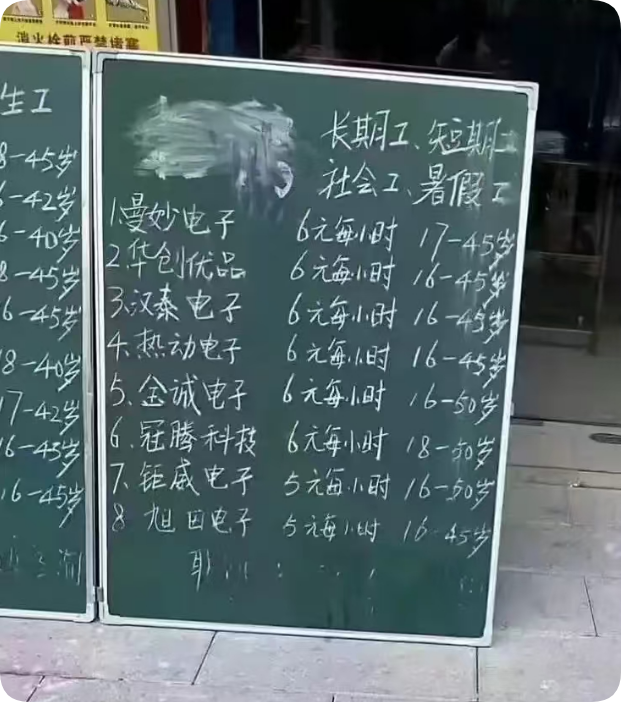 消火栓前严禁堵塞
生工
8-45岁
6-42岁
6-40岁
8-45岁
6-45岁
18-40岁
17-42岁
16-45岁
16-45岁
长期工、短期工
社会工、暑假工
1.曼妙电子 6元每小时 17-45岁
2.华创优品 6元每小时 16-45岁
3.汉泰电子 6元每小时 16-45岁
4.热动电子 6元每小时 16-45岁
5.金诚电子 6元每小时 16-50岁
6.冠腾科技 6元每小时 18-50岁
7.钜威电子 5元每小时 16-50岁
8 旭田电子 5元每小时 16-45岁